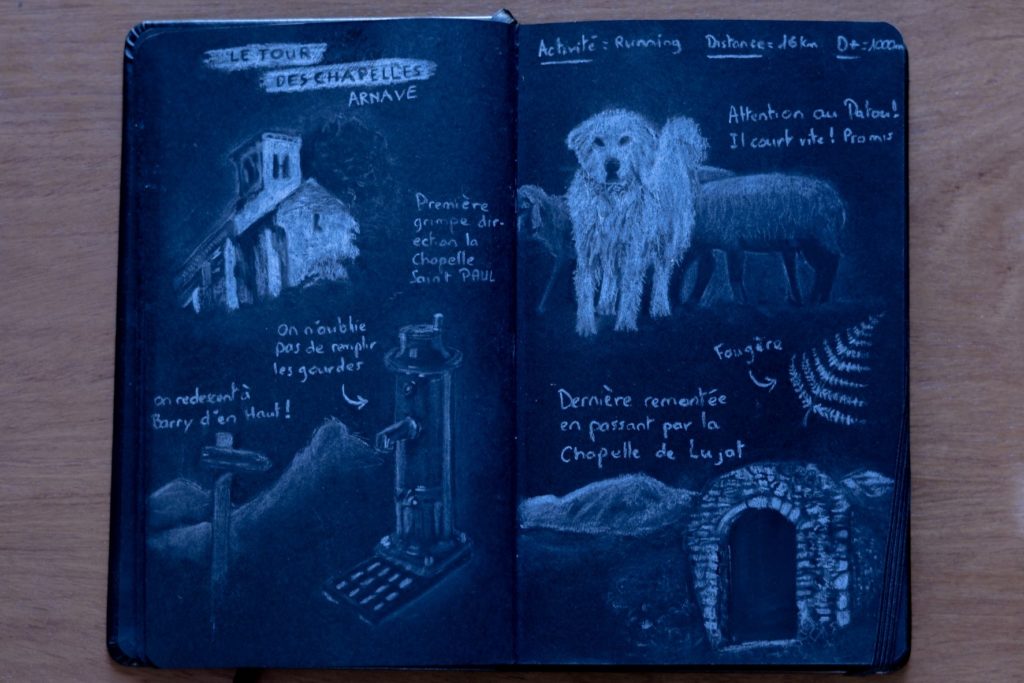 LE TOUR
DES CHAPELLES
ARNAVE
Première
grimpe dir-
ection la
Chapelle
Saint PAUL
On n'oublie
pas de remplir
les gourdes
on redescent à
Barry d'en Haut!
Activité : Running Distance = 16km D+ = 1000m
Attention au Patou!
Il court vite! Promis
Fougère
Dernière remontée
en passant par la
Chapelle de Lujat